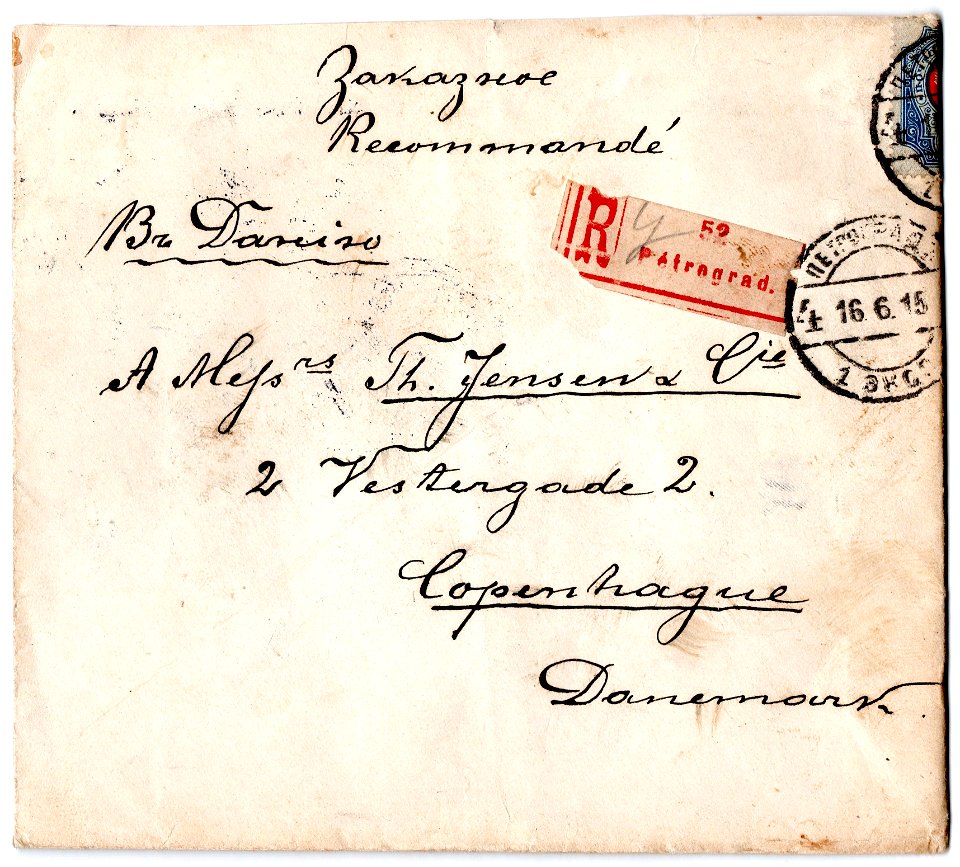 Заказное
Recommandé
Въ Данiю
R 52
Pétrograd.
ПЕТРОГРАД
4 16.6.15
1 ЭКСП
A Messrs Th. Jensen & Cie
2 Vestergade 2.
Copenhague
Danemark.